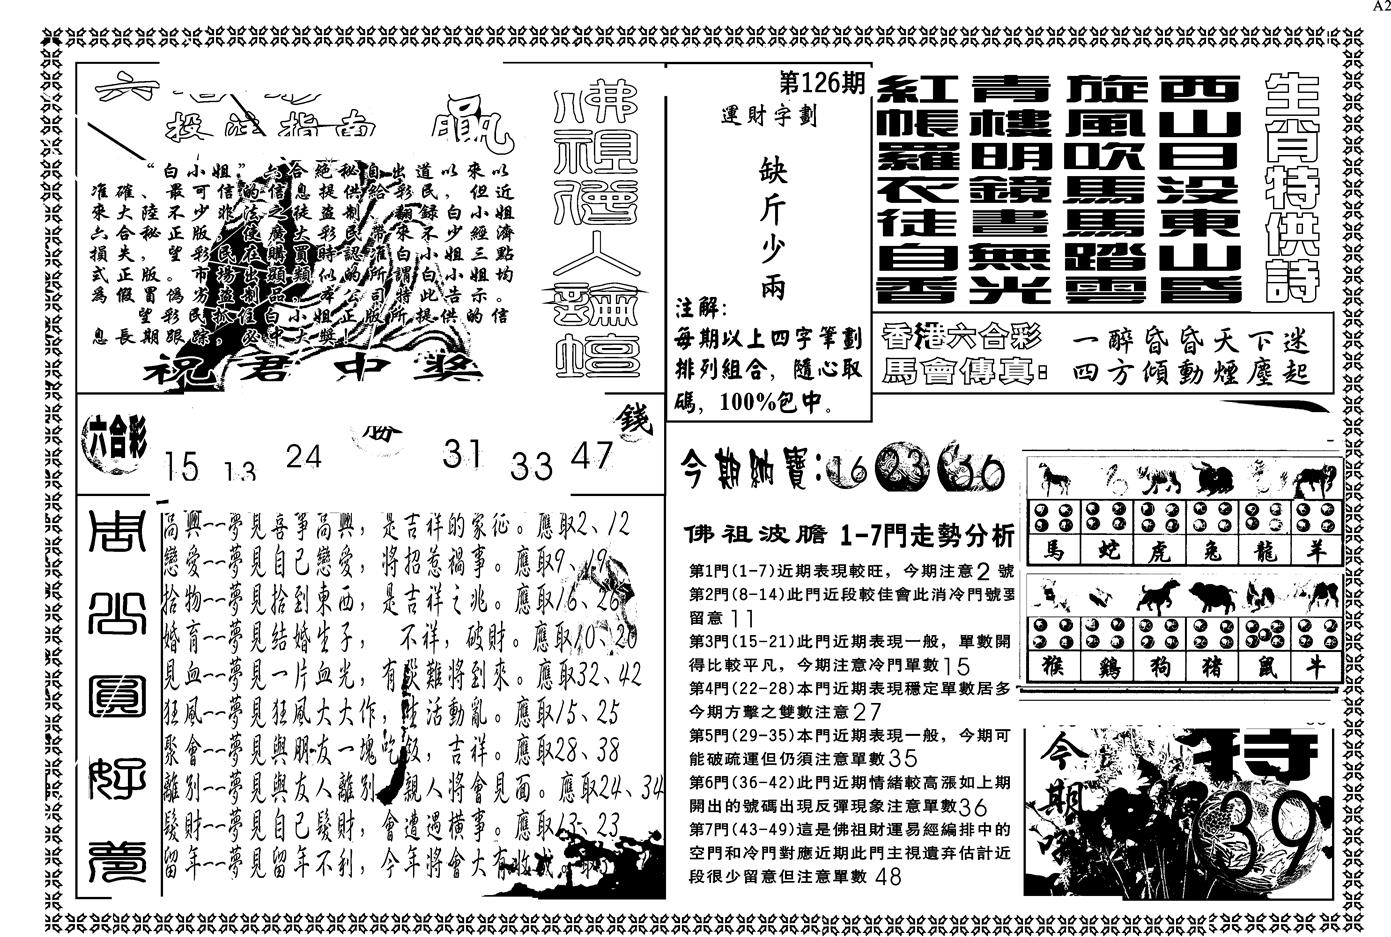 A2
投注指南
“白小姐”六合絕秘自出道以來以
准確、最可信的信息提供給彩民，但近
來大陸不少非法之徒盜制、翻録白小姐
六合秘正版，使廣大彩民帶來不少經濟
損失，望彩民在購買時認准白小姐三點
式正版。市場出現類似的所謂白小姐均
為假冒偽劣盜制品，本公司特此告示。
望彩民抓住白小姐正版所提供的信
息長期跟踪，必中大獎！
祝君中奖
第126期
運財字劃
缺斤少兩
注解：
每期以上四字筆劃
排列組合，隨心取
碼，100%包中。
生肖特供詩
西山日没東山昏
旋風吹馬馬踏雲
青樓明鏡晝無光
紅帳羅衣徒自香
香港六合彩
馬會傳真：
一醉昏昏天下迷
四方傾動煙塵起
六合彩
15 13 24 31 33 47
錢
高興--夢見喜事高興，是吉祥的家征。應取2、12
戀愛--夢見自己戀愛，將招惹禍事。應取9、19
拾物--夢見拾到東西，是吉祥之兆。應取16、26
婚育--夢見結婚生子，不祥，破財。應取10、20
見血--夢見一片血光，有災難將到來。應取32、42
狂風--夢見狂風大大作，生活動亂。應取15、25
聚會--夢見與朋友一塊吃飯，吉祥。應取28、38
離別--夢見與友人離別，親人將會見面。應取24、34
髮財--夢見自己髮財，會遭遇横事。應取13、23
留年--夢見留年不利，今年將會大有收成。取
今期納寶：16 23 36
佛祖波膽 1-7門走勢分析
第1門(1-7)近期表現較旺，今期注意2 號
第2門(8-14)此門近段較佳會此消冷門號要
留意 11
第3門(15-21)此門近期表現一般，單數開
得比較平凡，今期注意冷門單數15
第4門(22-28)本門近期表現穩定單數居多
今期方擊之雙數注意27
第5門(29-35)本門近期表現一般，今期可
能破疏運但仍須注意單數35
第6門(36-42)此門近期情緒較高漲如上期
開出的號碼出現反彈現象注意單數36
第7門(43-49)這是佛祖財運易經編排中的
空門和冷門對應近期此門主視遺弃估計近
段很少留意但注意單數 48
馬 蛇 虎 兔 龍 羊
猴 鷄 狗 猪 鼠 牛
今期
特
39